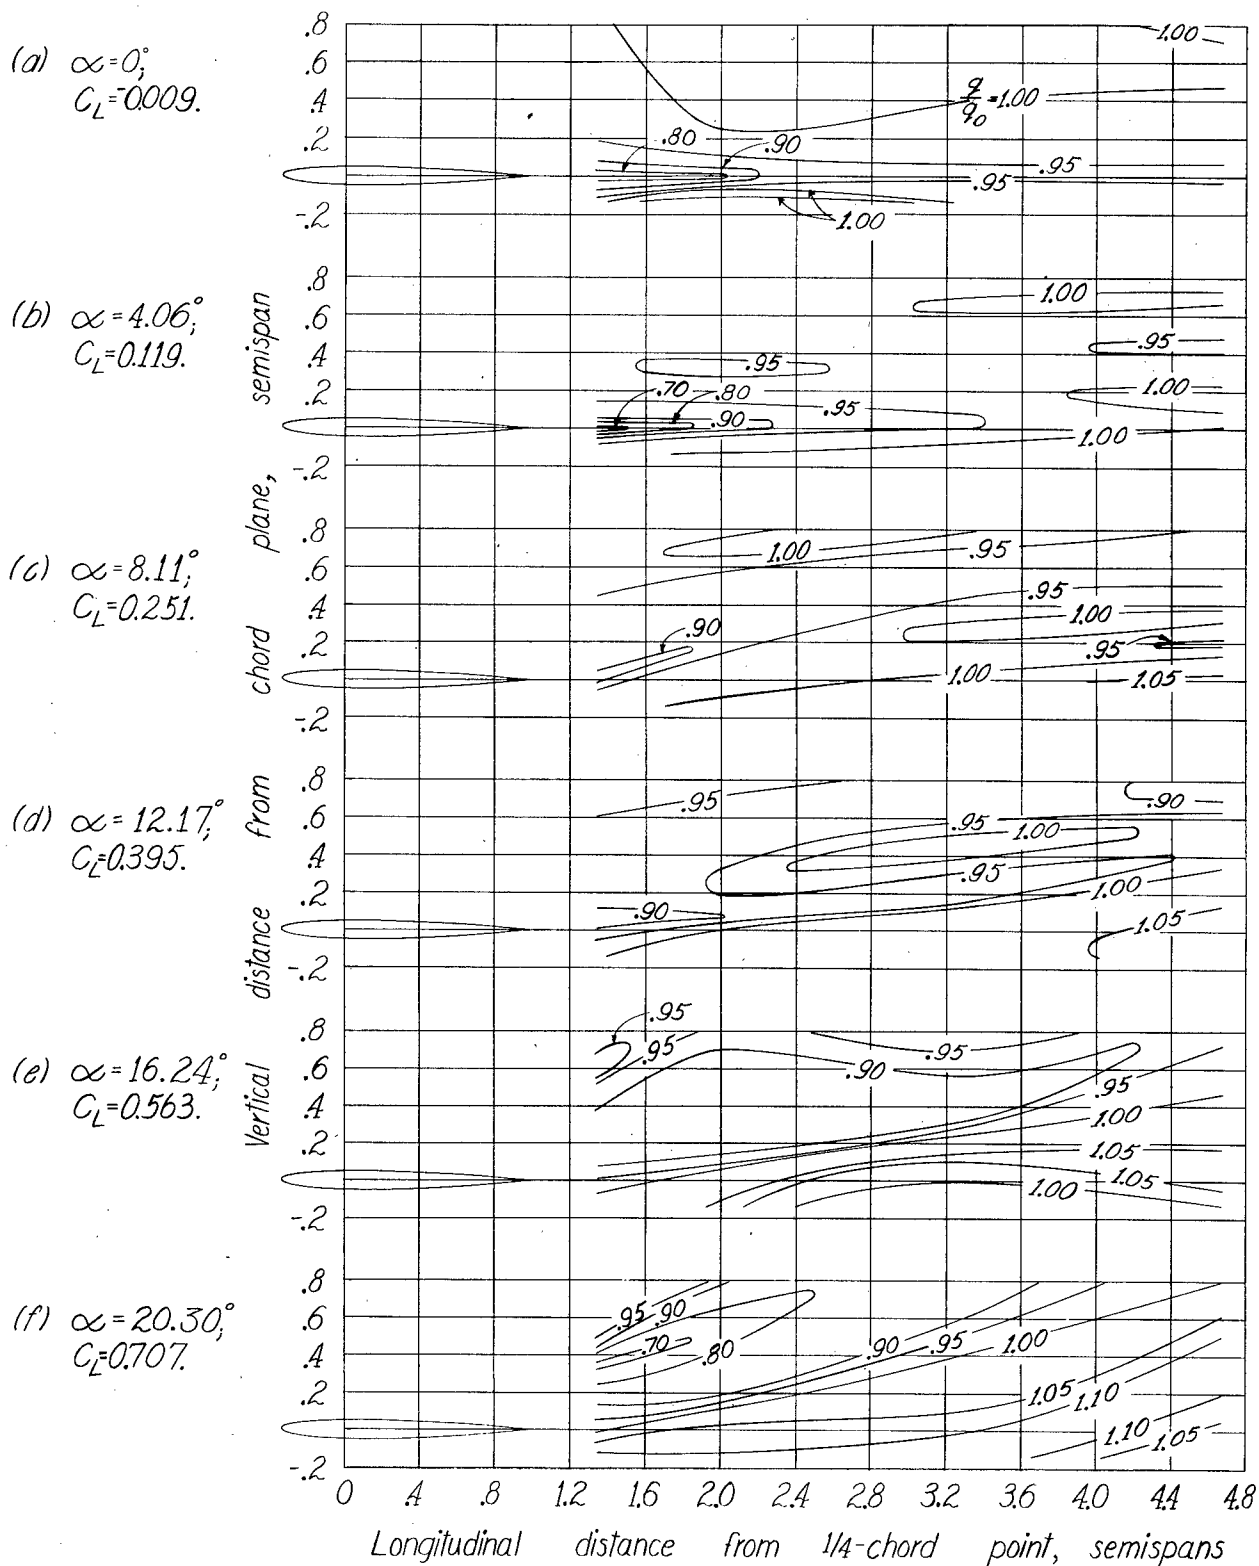 (a) α=0°;
C_L=-0.009.
.8
.6
.4
.2
-.2
1.00
q/q₀=1.00
.80
.90
.95
.95
1.00
(b) α=4.06°;
C_L=0.119.
.8
.6
.4
.2
-.2
1.00
.95
.95
1.00
.70
.80
.90
.95
1.00
(c) α=8.11°;
C_L=0.251.
.8
.6
.4
.2
-.2
1.00
.95
.95
1.00
.90
.95
1.00
1.05
(d) α=12.17°;
C_L=0.395.
.8
.6
.4
.2
-.2
.95
.90
.95
1.00
.95
1.00
.90
1.05
(e) α=16.24°;
C_L=0.563.
.8
.6
.4
.2
-.2
.95
.95
.95
.90
.95
1.00
1.05
1.05
1.00
(f) α=20.30°;
C_L=0.707.
.8
.6
.4
.2
-.2
.95
.90
.70
.80
.90
.95
1.00
1.05
1.10
1.10
1.05
Vertical distance from chord plane, semispan
0 .4 .8 1.2 1.6 2.0 2.4 2.8 3.2 3.6 4.0 4.4 4.8
Longitudinal distance from 1/4-chord point, semispans